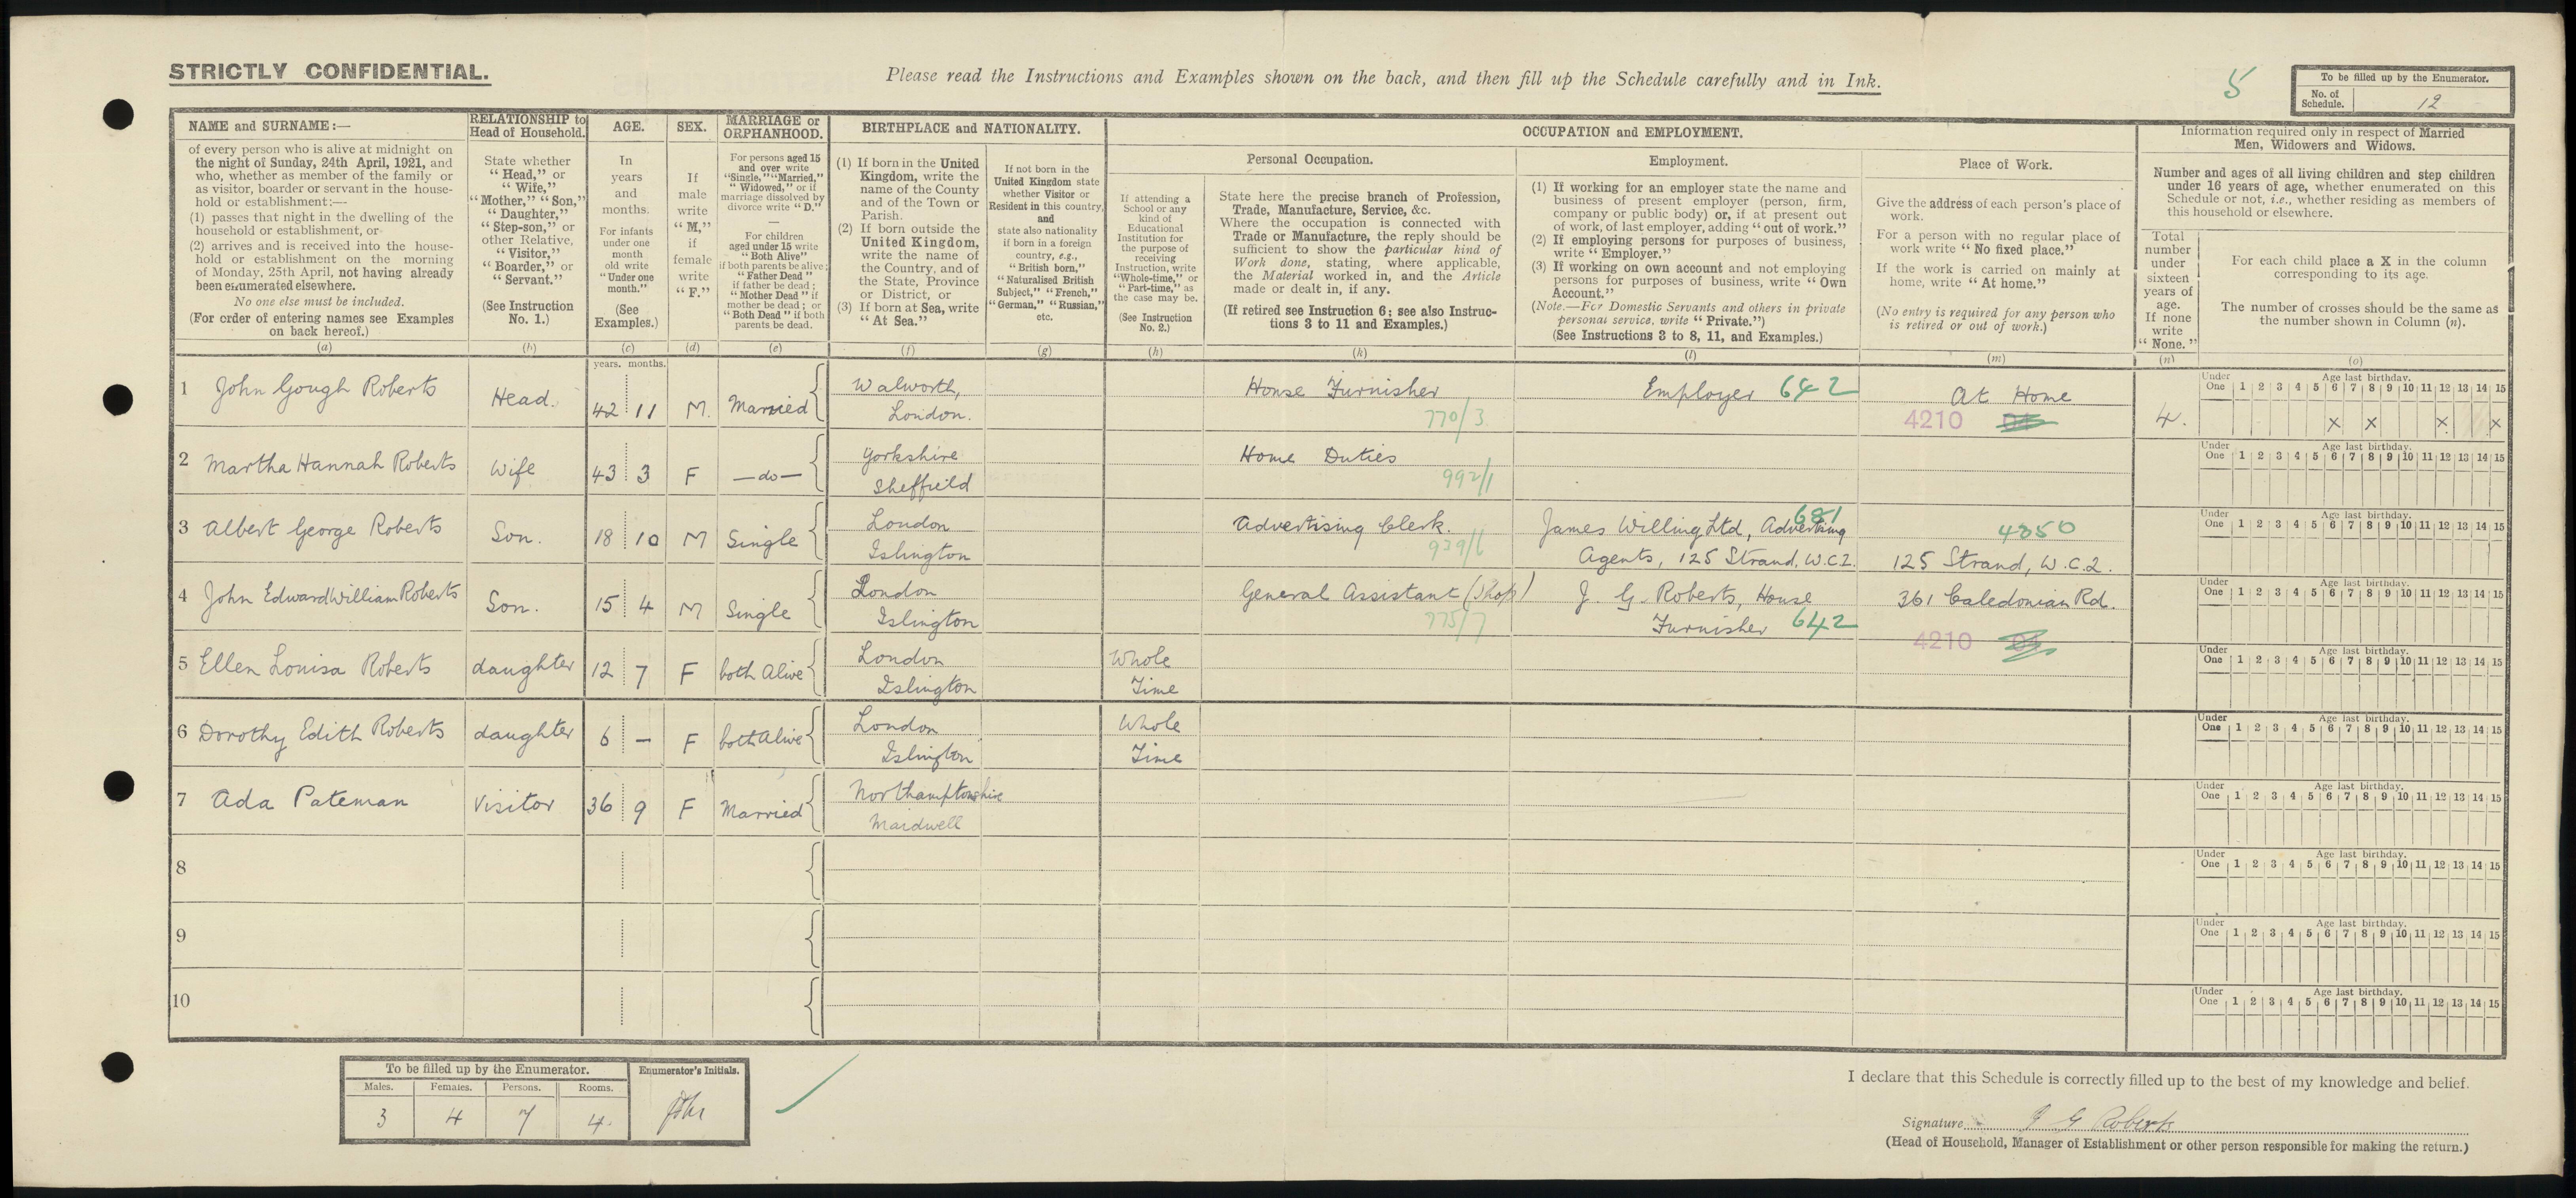 STRICTLY CONFIDENTIAL.
Please read the Instructions and Examples shown on the back, and then fill up the Schedule carefully and in Ink.
5
To be filled up by the Enumerator.
No. of Schedule. 12
NAME and SURNAME:—
of every person who is alive at midnight on
the night of Sunday, 24th April, 1921, and
who, whether as member of the family or
as visitor, boarder or servant in the house-
hold or establishment:—
(1) passes that night in the dwelling of the
household or establishment, or
(2) arrives and is received into the house-
hold or establishment on the morning
of Monday, 25th April, not having already
been enumerated elsewhere.
No one else must be included.
(For order of entering names see Examples
on back hereof.)
(a)
RELATIONSHIP to
Head of Household.
State whether
"Head," or
"Wife,"
"Mother," "Son,"
"Daughter,"
"Step-son," or
other Relative,
"Visitor,"
"Boarder," or
"Servant."
(See Instruction
No. 1.)
(b)
AGE.
In
years
and
months.
For infants
under one
month
old write
"Under one
month."
(See
Examples.)
(c)
years. months.
SEX.
If
male
write
"M,"
if
female
write
"F."
(d)
MARRIAGE or
ORPHANHOOD.
For persons aged 15
and over write
"Single," "Married,"
"Widowed," or if
marriage dissolved by
divorce write "D."
—
For children
aged under 15 write
"Both Alive"
if both parents be alive;
"Father Dead"
if father be dead;
"Mother Dead" if
mother be dead; or
"Both Dead" if both
parents be dead.
(e)
BIRTHPLACE and NATIONALITY.
(1) If born in the United
Kingdom, write the
name of the County
and of the Town or
Parish.
(2) If born outside the
United Kingdom,
write the name of
the Country, and of
the State, Province
or District, or
(3) If born at Sea, write
"At Sea."
(f)
If not born in the
United Kingdom state
whether Visitor or
Resident in this country,
and
state also nationality
if born in a foreign
country, e.g.,
"British born,"
"Naturalised British
Subject," "French,"
"German," "Russian,"
etc.
(g)
OCCUPATION and EMPLOYMENT.
Personal Occupation.
If attending a
School or any
kind of
Educational
Institution for
the purpose of
receiving
Instruction, write
"Whole-time," or
"Part-time," as
the case may be.
(See Instruction
No. 2.)
(h)
State here the precise branch of Profession,
Trade, Manufacture, Service, &c.
Where the occupation is connected with
Trade or Manufacture, the reply should be
sufficient to show the particular kind of
Work done, stating, where applicable,
the Material worked in, and the Article
made or dealt in, if any.
(If retired see Instruction 6; see also Instruc-
tions 3 to 11 and Examples.)
(k)
Employment.
(1) If working for an employer state the name and
business of present employer (person, firm,
company or public body) or, if at present out
of work, of last employer, adding "out of work."
(2) If employing persons for purposes of business,
write "Employer."
(3) If working on own account and not employing
persons for purposes of business, write "Own
Account."
(Note.—For Domestic Servants and others in private
personal service, write "Private.")
(See Instructions 3 to 8, 11, and Examples.)
(l)
Place of Work.
Give the address of each person's place of
work.
For a person with no regular place of
work write "No fixed place."
If the work is carried on mainly at
home, write "At home."
(No entry is required for any person who
is retired or out of work.)
(m)
Information required only in respect of Married
Men, Widowers and Widows.
Number and ages of all living children and step children
under 16 years of age, whether enumerated on this
Schedule or not, i.e., whether residing as members of
this household or elsewhere.
Total
number
under
sixteen
years of
age.
If none
write
"None."
(n)
For each child place a X in the column
corresponding to its age.
The number of crosses should be the same as
the number shown in Column (n).
(o)
1 John Gough Roberts Head. 42 11 M. Married Walworth, London. House Furnisher 770/3 Employer 642 At Home 4210 4.
Under One Age last birthday. 1 2 3 4 5 6 7 8 9 10 11 12 13 14 15
x x x x
2 Martha Hannah Roberts Wife 43 3 F —do— Yorkshire Sheffield Home Duties 992/1
Under One Age last birthday. 1 2 3 4 5 6 7 8 9 10 11 12 13 14 15
3 Albert George Roberts Son. 18 10 M Single London Islington Advertising Clerk. 939/6 James Willing Ltd, Advertising 681 Agents, 125 Strand, W.C.2. 4350 125 Strand, W.C.2.
Under One Age last birthday. 1 2 3 4 5 6 7 8 9 10 11 12 13 14 15
4 John Edward William Roberts Son. 15 4 M Single London Islington General Assistant (Shop) 775/7 J. G. Roberts, House Furnisher 642 361 Caledonian Rd. 4210
Under One Age last birthday. 1 2 3 4 5 6 7 8 9 10 11 12 13 14 15
5 Ellen Louisa Roberts daughter 12 7 F both Alive London Islington Whole Time
Under One Age last birthday. 1 2 3 4 5 6 7 8 9 10 11 12 13 14 15
6 Dorothy Edith Roberts daughter 6 — F both Alive London Islington Whole Time
Under One Age last birthday. 1 2 3 4 5 6 7 8 9 10 11 12 13 14 15
7 Ada Pateman Visitor 36 9 F Married Northamptonshire Mardwell
Under One Age last birthday. 1 2 3 4 5 6 7 8 9 10 11 12 13 14 15
8
Under One Age last birthday. 1 2 3 4 5 6 7 8 9 10 11 12 13 14 15
9
Under One Age last birthday. 1 2 3 4 5 6 7 8 9 10 11 12 13 14 15
10
Under One Age last birthday. 1 2 3 4 5 6 7 8 9 10 11 12 13 14 15
To be filled up by the Enumerator.
Enumerator's Initials.
Males. Females. Persons. Rooms.
3 4 7 4
I declare that this Schedule is correctly filled up to the best of my knowledge and belief.
Signature J G Roberts
(Head of Household, Manager of Establishment or other person responsible for making the return.)